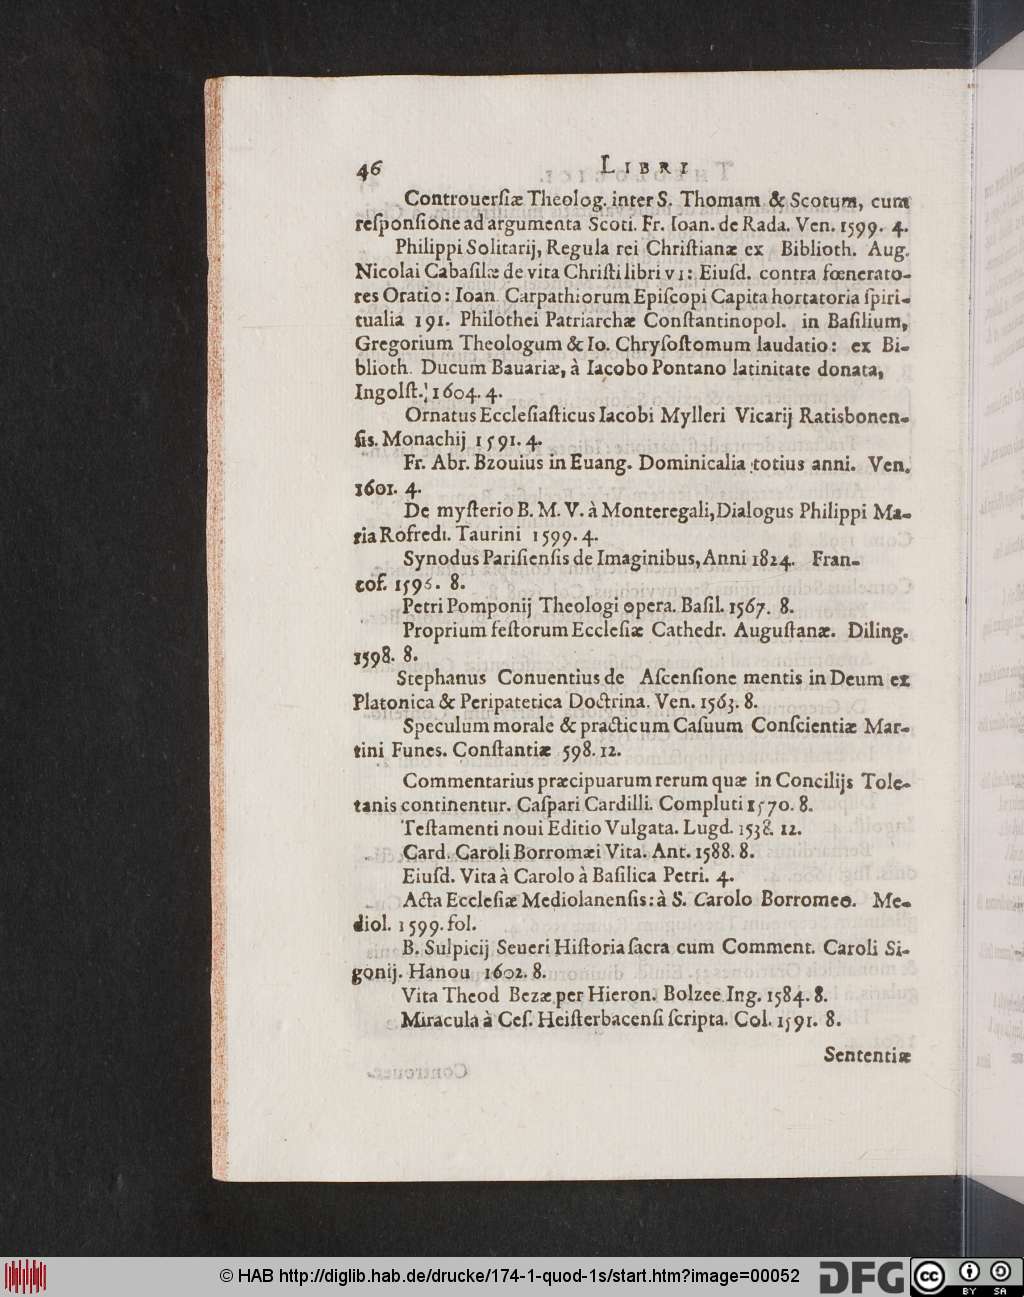 46 LIBRI
Controuerſiæ Theolog. inter S. Thomam & Scotum, cum
reſponſione ad argumenta Scoti. Fr. Ioan. de Rada. Ven. 1599. 4.
Philippi Solitarij, Regula rei Chriſtianæ ex Biblioth. Aug.
Nicolai Cabaſilæ de vita Chriſti libri VI: Eiuſd. contra fœnerato-
res Oratio: Ioan. Carpathiorum Epiſcopi Capita hortatoria ſpiri-
tualia 191. Philothei Patriarchæ Conſtantinopol. in Baſilium,
Gregorium Theologum & Io. Chryſoſtomum laudatio: ex Bi-
blioth. Ducum Bauariæ, à Iacobo Pontano latinitate donata,
Ingolſt. 1604. 4.
Ornatus Eccleſiaſticus Iacobi Mylleri Vicarij Ratisbonen-
ſis. Monachij 1591. 4.
Fr. Abr. Bzouius in Euang. Dominicalia totius anni. Ven.
1601. 4.
De myſterio B. M. V. à Monteregali, Dialogus Philippi Ma-
ria Rofredi. Taurini 1599. 4.
Synodus Pariſienſis de Imaginibus, Anni 1824. Fran-
cof. 1596. 8.
Petri Pomponij Theologi opera. Baſil. 1567. 8.
Proprium feſtorum Eccleſiæ Cathedr. Auguſtanæ. Diling.
1598. 8.
Stephanus Conuentius de Aſcenſione mentis in Deum ex
Platonica & Peripatetica Doctrina. Ven. 1563. 8.
Speculum morale & practicum Caſuum Conſcientiæ Mar-
tini Funes. Conſtantiæ 598. 12.
Commentarius præcipuarum rerum quæ in Concilijs Tole-
tanis continentur. Caſpari Cardilli. Compluti 1570. 8.
Teſtamenti noui Editio Vulgata. Lugd. 1538. 12.
Card. Caroli Borromæi Vita. Ant. 1588. 8.
Eiuſd. Vita à Carolo à Baſilica Petri. 4.
Acta Eccleſiæ Mediolanenſis: à S. Carolo Borromeo. Me-
diol. 1599. fol.
B. Sulpicij Seueri Hiſtoria ſacra cum Comment. Caroli Si-
gonij. Hanou 1602. 8.
Vita Theod Bezæ per Hieron. Bolzec Ing. 1584. 8.
Miracula à Ceſ. Heiſterbacenſi ſcripta. Col. 1591. 8.
Sententiæ
© HAB http://diglib.hab.de/drucke/174-1-quod-1s/start.htm?image=00052 DFG cc BY SA